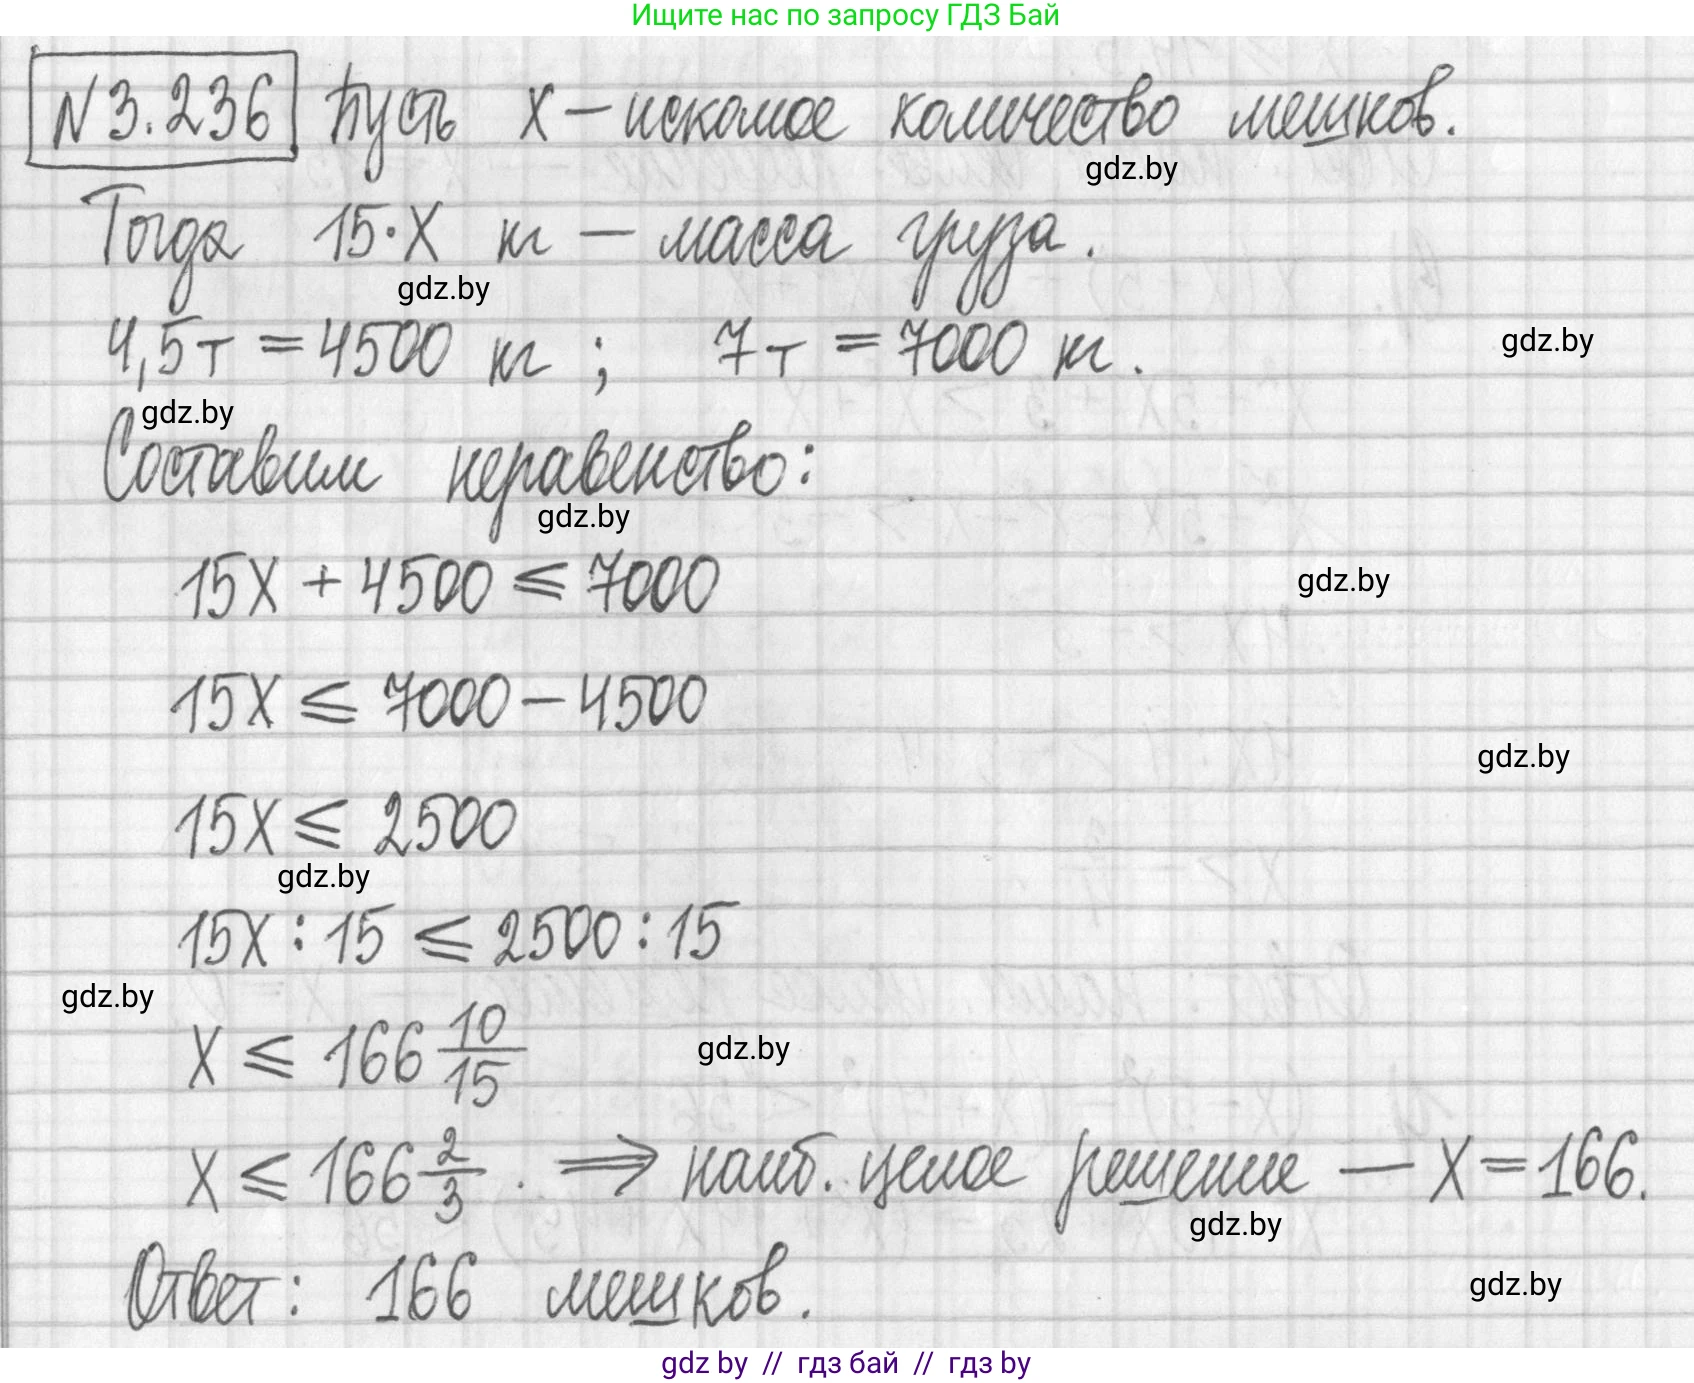 Ищите нас по запросу ГДЗ Бай
N 3.236 Пусть x – искомое количество мешков.
gdz.by
Тогда 15·x кг – масса груза.
gdz.by
4,5т = 4500 кг ; 7т = 7000 кг.
gdz.by
gdz.by
Составим неравенство:
gdz.by
15x + 4500 ⩽ 7000
gdz.by
15x ⩽ 7000 – 4500
gdz.by
15x ⩽ 2500
gdz.by
15x : 15 ⩽ 2500 : 15
gdz.by
x ⩽ 166 10/15
gdz.by
x ⩽ 166 2/3 . ⇒ наиб. целое решение — x = 166.
gdz.by
gdz.by
Ответ: 166 мешков.
gdz by // гдз бай // гдз by